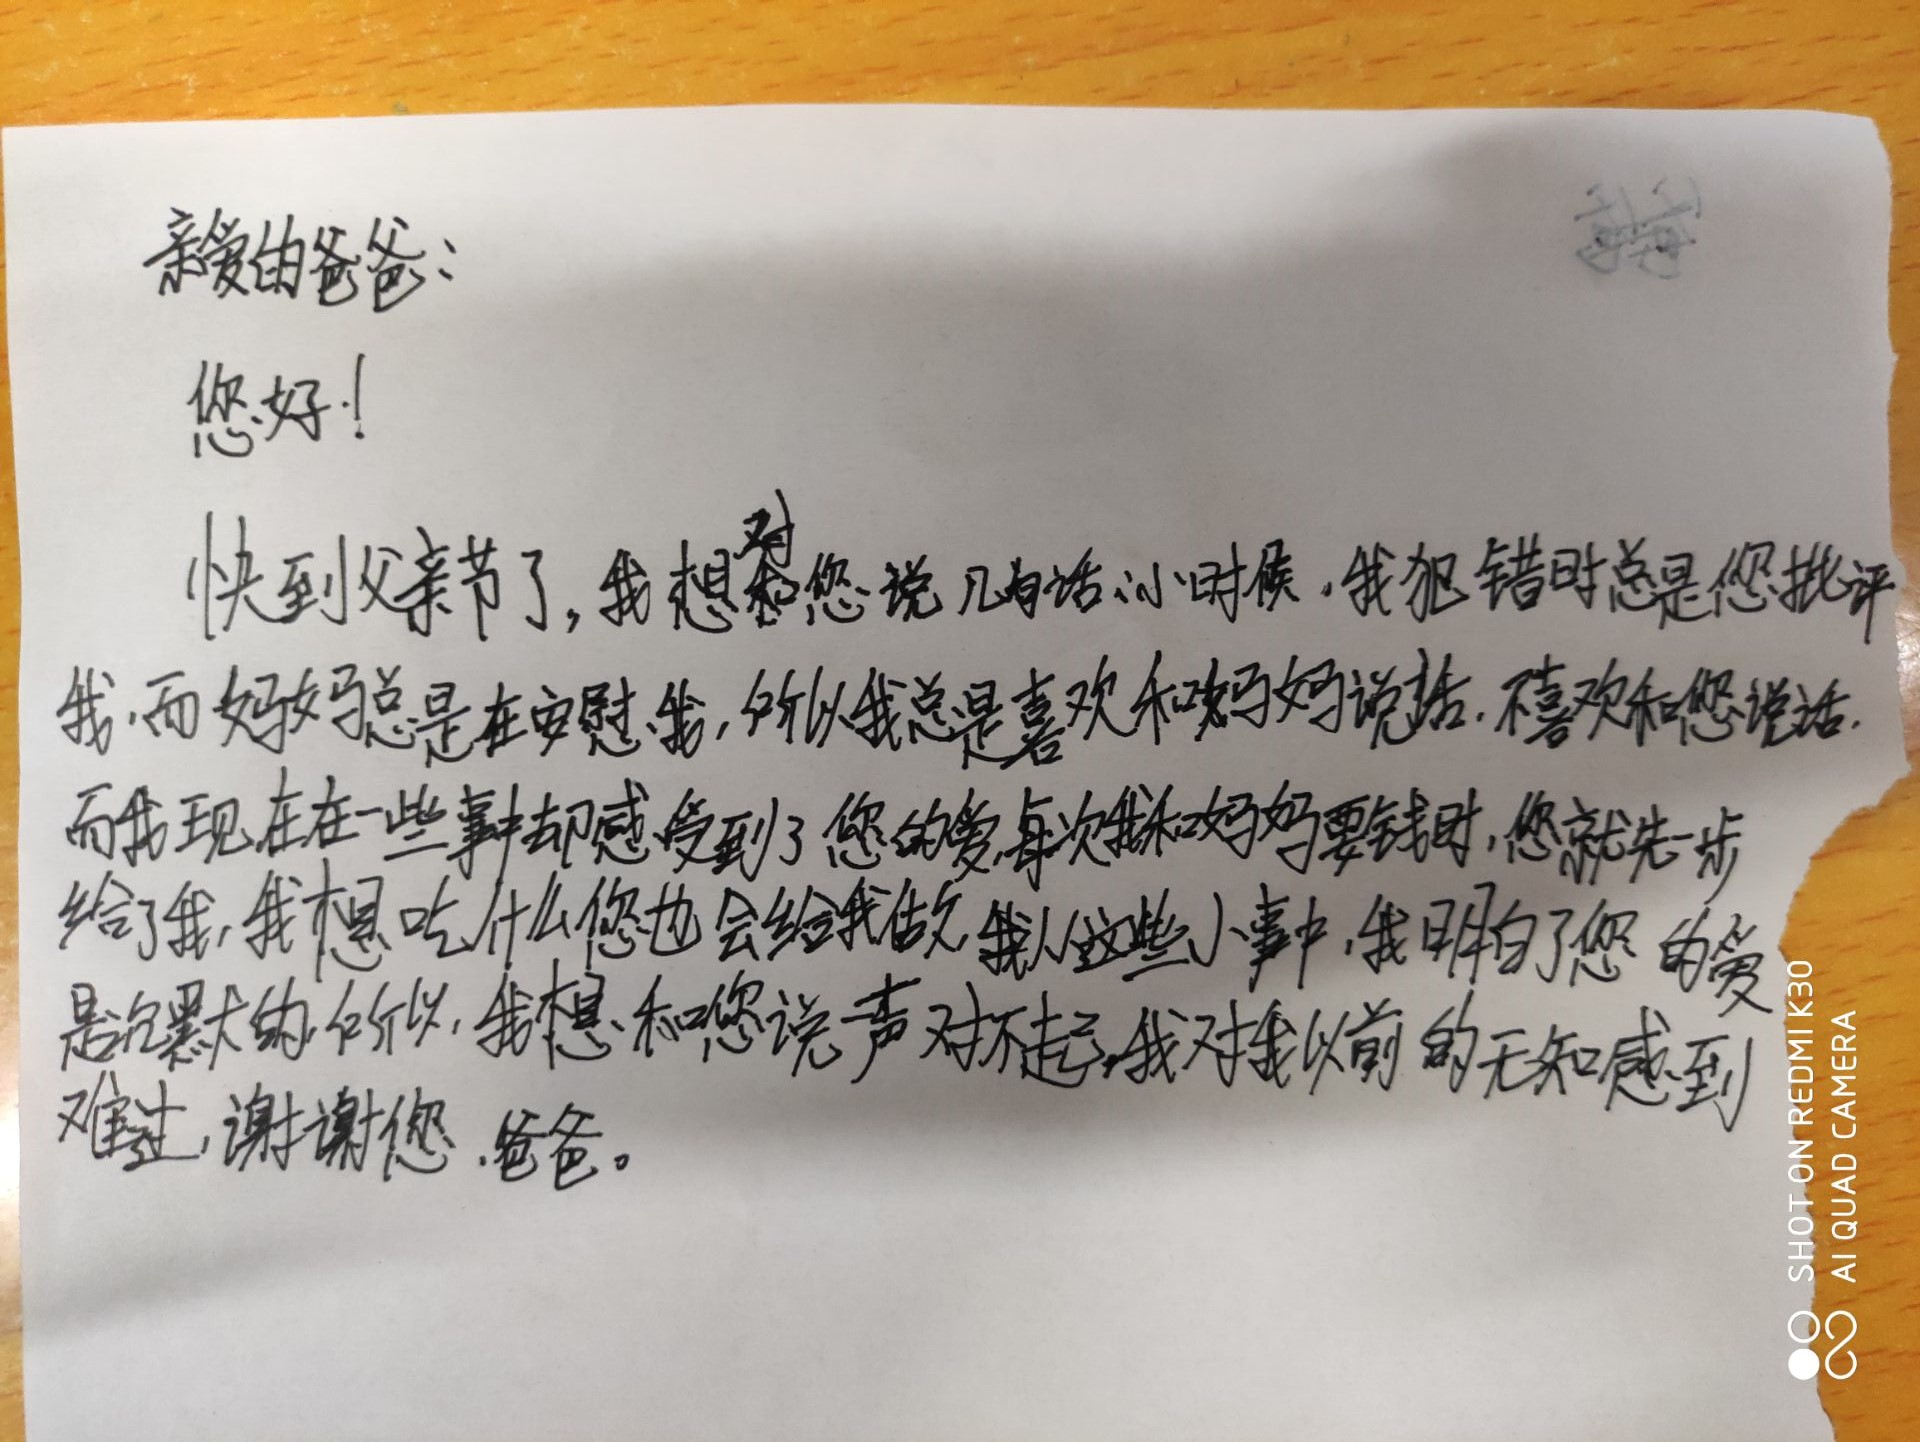 亲爱的爸爸：
您好！
快到父亲节了，我想对您说几句话，小时候，我犯错时总是您批评
我，而妈妈总是在安慰我，所以我总是喜欢和妈妈说话，不喜欢和您说话，
而我现在在一些事中却感受到了您的爱，每次我和妈妈要钱时，您就先一步
给了我，我想吃什么您也会给我做，我从这些小事中，我明白了您的爱
是沉默的，所以，我想和您说声对不起，我对我以前的无知感到
难过，谢谢您，爸爸。
SHOT ON REDMI K30
AI QUAD CAMERA